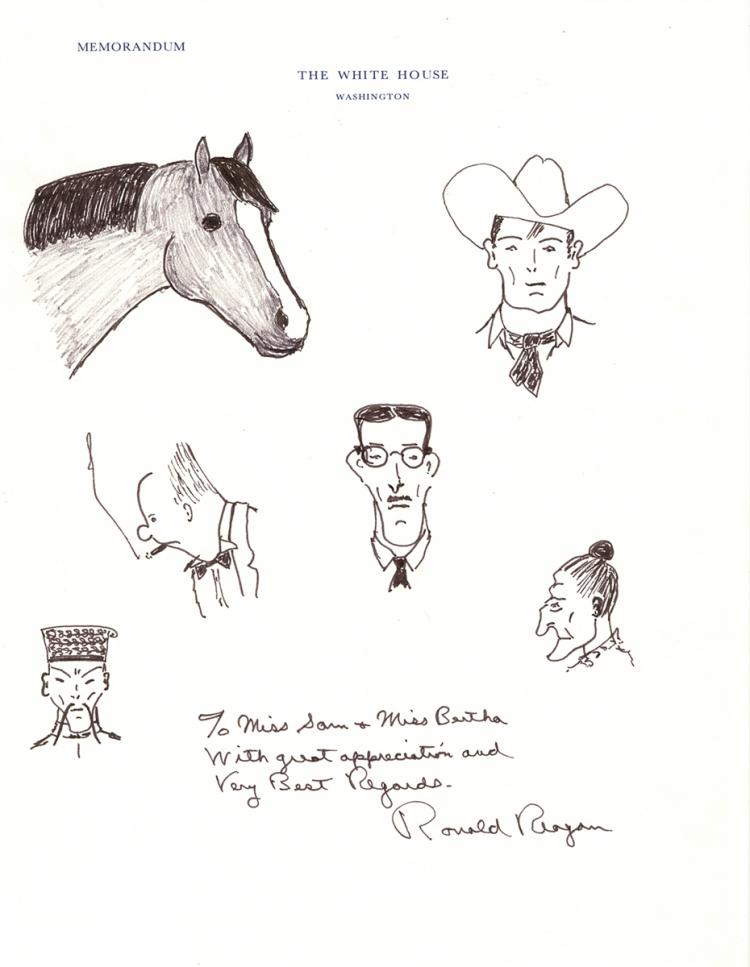 MEMORANDUM
THE WHITE HOUSE
WASHINGTON
To Miss Sam & Miss Bertha
With great appreciation and
Very Best Regards.
Ronald Reagan